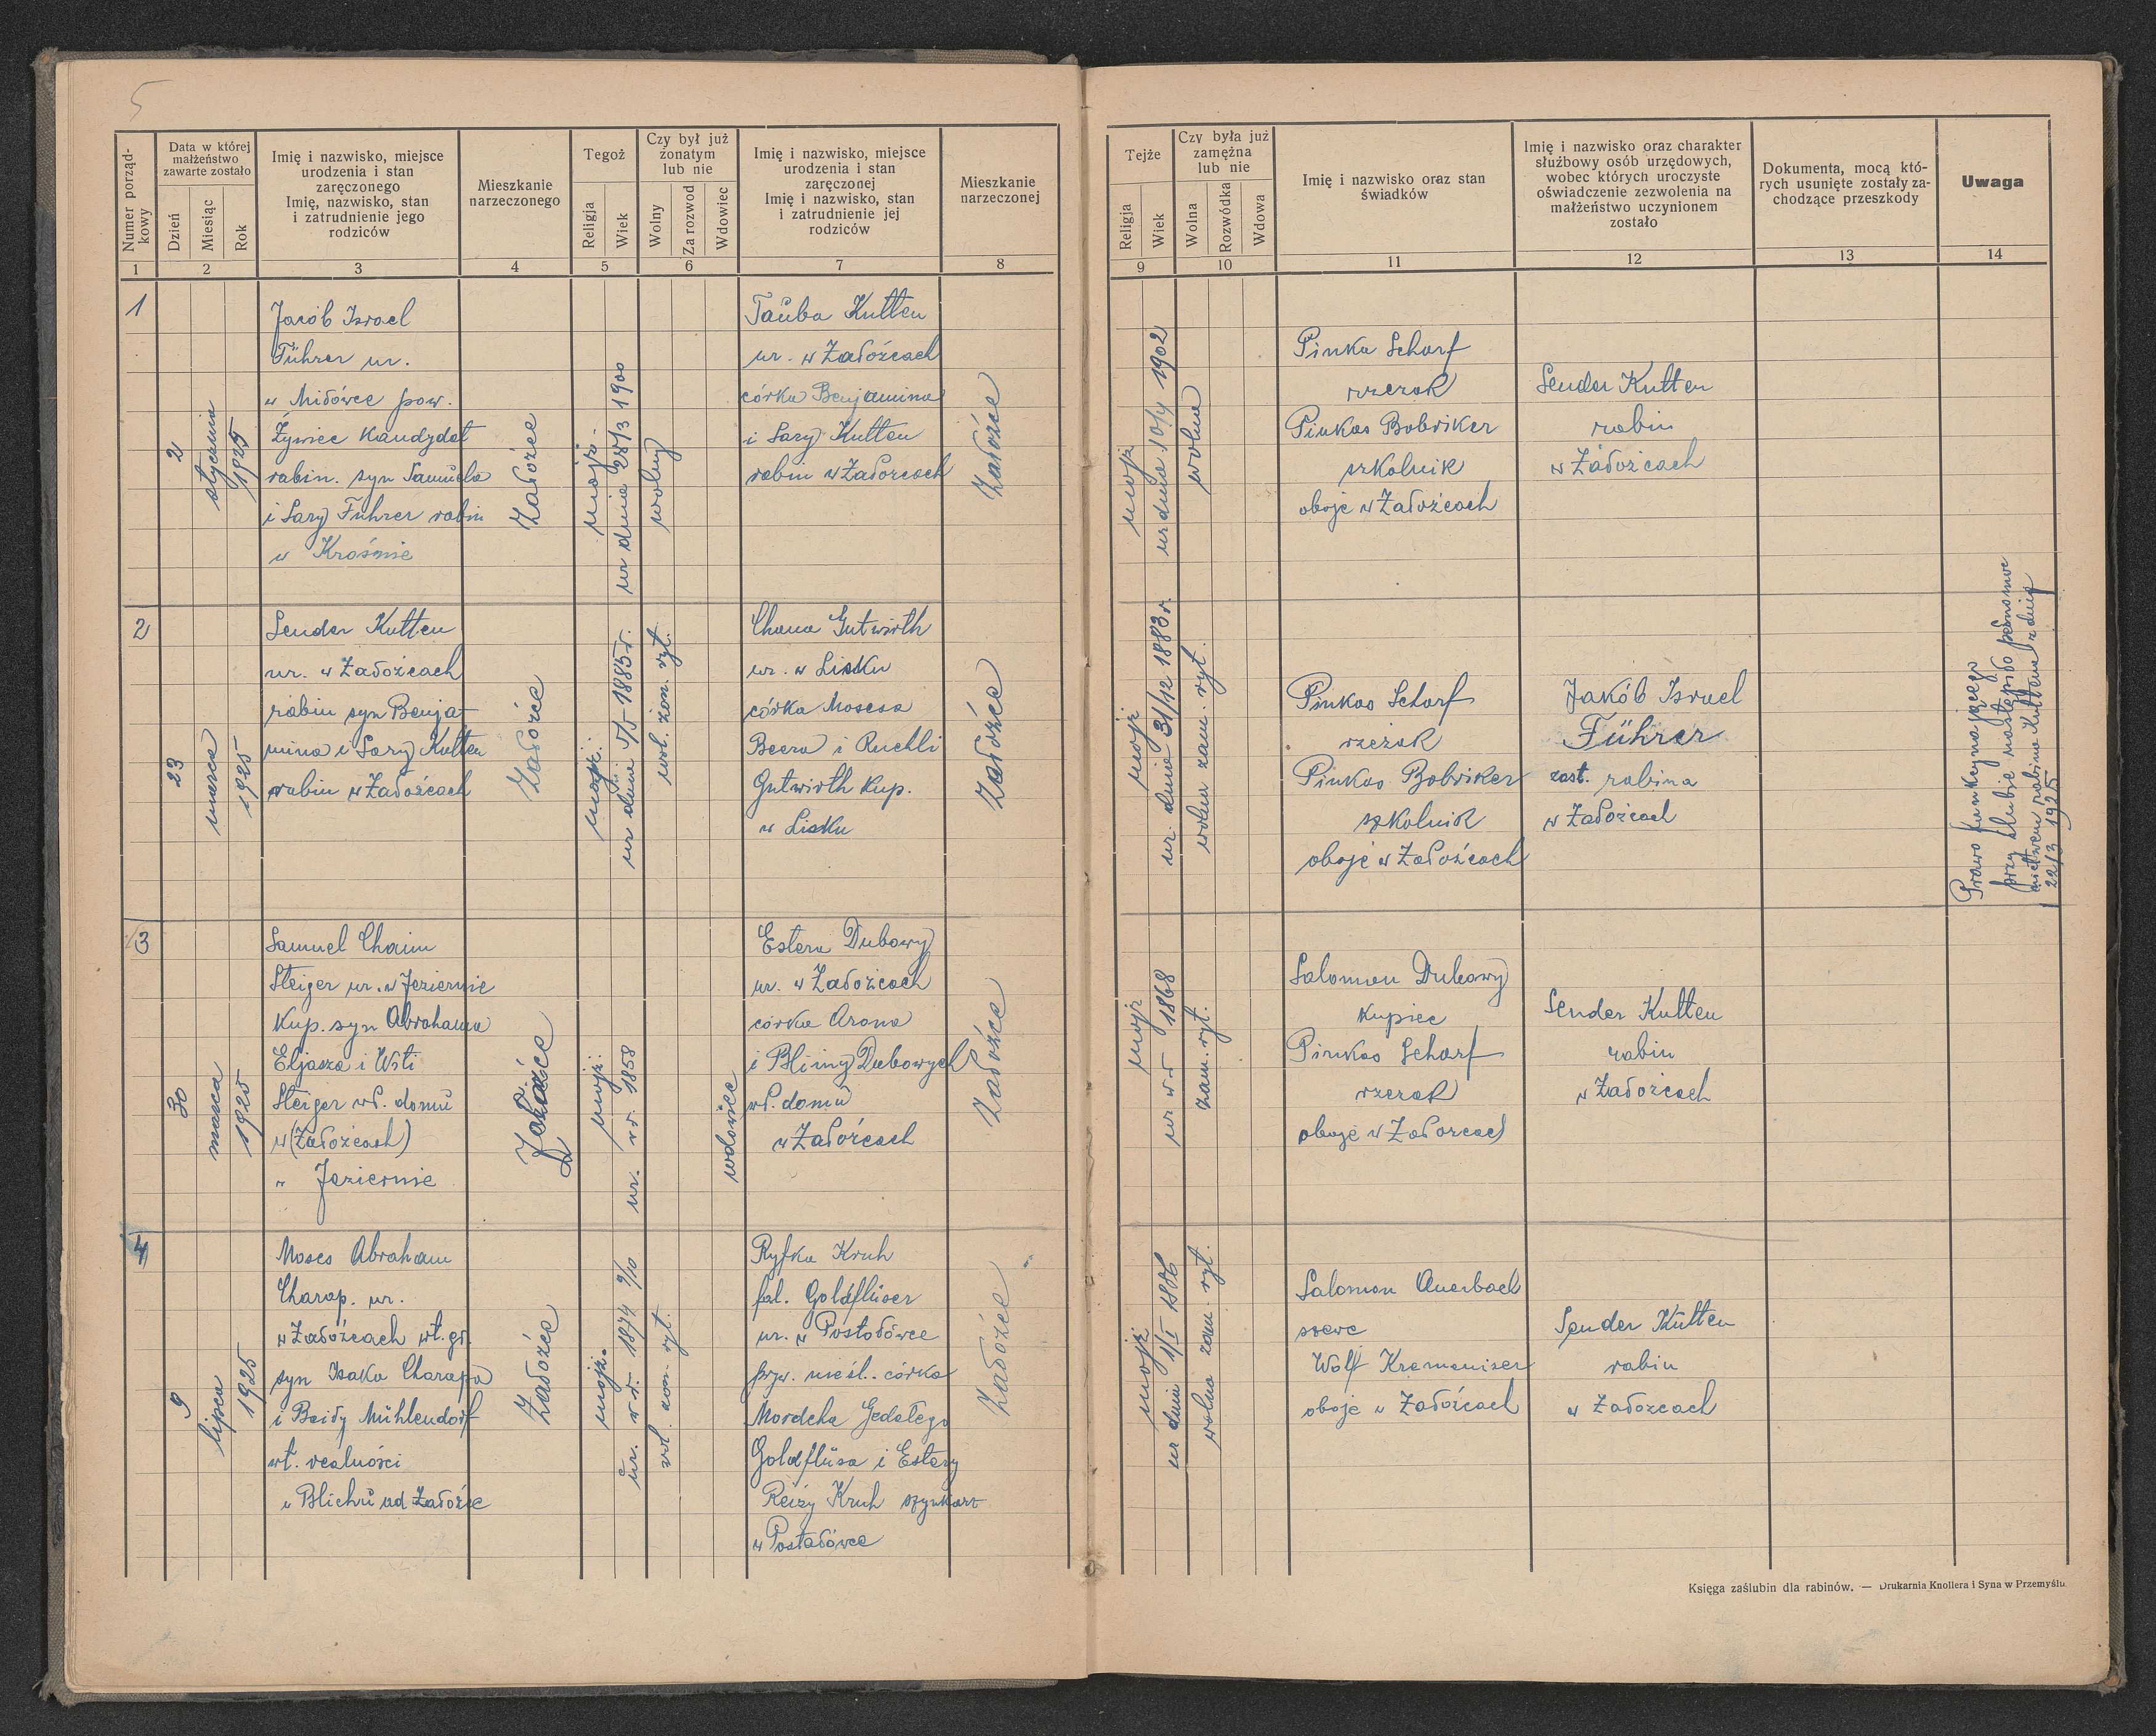 5
Numer porząd-
kowy
Data w której
małżeństwo
zawarte zostało
Dzień
Miesiąc
Rok
Imię i nazwisko, miejsce
urodzenia i stan
zaręczonego
Imię, nazwisko, stan
i zatrudnienie jego
rodziców
Mieszkanie
narzeczonego
Tegoż
Religja
Wiek
Czy był już
żonatym
lub nie
Wolny
Za rozwod
Wdowiec
Imię i nazwisko, miejsce
urodzenia i stan
zaręczonej
Imię i nazwisko, stan
i zatrudnienie jej
rodziców
Mieszkanie
narzeczonej
Tejże
Religja
Wiek
Czy była już
zamężna
lub nie
Wolna
Rozwódka
Wdowa
Imię i nazwisko oraz stan
świadków
Imię i nazwisko oraz charakter
służbowy osób urzędowych,
wobec których uroczyste
oświadczenie zezwolenia na
małżeństwo uczynionem
zostało
Dokumenta, mocą któ-
rych usunięte zostały za-
chodzące przeszkody
Uwaga
1 2 3 4 5 6 7 8 9 10 11 12 13 14
1
2
stycznia
1925
Jakób Israel
Führer ur.
w Miłówce pow.
Żywiec kandydat
rabin. syn Samuela
i Sary Führer rabin
w Krośnie
Załoźce
mojż.
ur dnia 28/3 1900
wolny
Tauba Kutten
ur. w Załoźcach
córka Benjamina
i Sary Kutten
rabin w Załozcach
Załoźce
mojż
ur dnia 10/4 1902
wolna
Pinkas Scharf
rzezak
Pinkas Bobriker
szkolnik
oboje w Załoźcach
Sender Kutten
rabin
w Załoźcach
2
23
marca
1925
Sender Kutten
ur. w Załoźcach
rabin syn Benja-
mina i Sary Kutten
rabin w Załoźcach
Załoźce
mojż.
ur dnia 5/5 1885 r.
wol. żon. ryt.
Chana Gutwirth
ur. w Lisku
córka Mosesa
Beera i Ruchli
Gutwirth kup.
w Lisku
Załoźce
mojż
ur. dnia 31/12 1883 r.
wolna zam. ryt.
Pinkas Scharf
rzezak
Pinkas Bobriker
szkolnik
oboje w Załoźcach
Jakób Israel
Führer
zast. rabina
w Załoźcach
Prawo funkcjonującego
przy ślubie nastąpiło pełnomoc
nictwem rabina Kuttena z dnia
22/3 1925
3
30
marca
1925
Samuel Chaim
Steiger ur. w Jeziernie
kup. syn Abrahama
Eljasza i Wsti
Steiger wł. domu
w (Załoźcach)
" Jeziernie
Załoźce
mojż.
ur. w r. 1858
wdowiec
Estera Dubowy
ur. w Załoźcach
córka Arona
i Blimy Dubowych
wł. domu
w Załoźcach
Załoźce
mojż
ur w r 1868
zam. ryt.
Salomon Dubowy
kupiec
Pinkas Scharf
rzezak
oboje w Załozcach
Sender Kutten
rabin
w Załoźcach
4
9
lipca
1925
Moses Abraham
Charap. ur.
w Załoźcach wł. gr.
syn Isaka Charapa
i Beidy Mühlendorf
wł. realności
w Blichu ad Załoźce
Załoźce
mojż.
ur. w r. 1874 9/10
wol. żon. ryt.
Ryfka Kruh
fal. Goldflüser
ur. w Postołówce
pryw. nieśl. córka
Mordcha Gedalego
Goldflüsa i Estery
Reizy Kruh szynkarz
w Postałówce
Załoźce
mojż
ur dnia 1/I 1886
wolna zam. ryt.
Salomon Auerbach
szewc
Wolf Kremenizer
oboje w Załoźcach
Sender Kutten
rabin
w Załozcach
Księga zaślubin dla rabinów. — Drukarnia Knollera i Syna w Przemyślu.